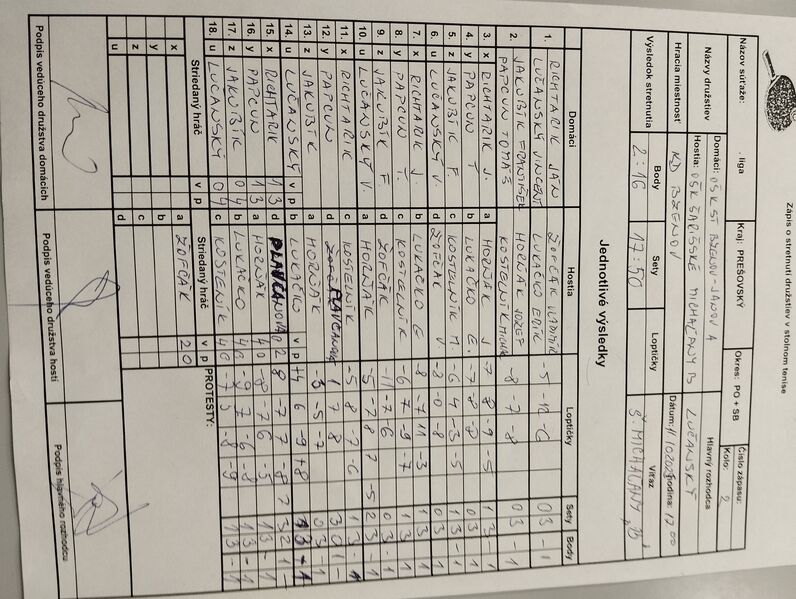 Zápis o stretnutí družstiev v stolnom tenise
Názov súťaže: . liga Kraj: PREŠOVSKÝ Okres: PO + SB Číslo zápasu:
Kolo: 2
Názvy družstiev Domáci: OŠK ST BZENOV-JANOV A Hlavný rozhodca
Hostia: OŠK ŠARIŠSKÉ MICHAĽANY B LUČANSKÝ
Hracia miestnosť KD BZENOV Dátum: hodina: 17 00
Výsledok stretnutia Body Sety Loptičky Víťaz
2:16 17:50 Š. MICHAĽANY "B"
Jednotlivé výsledky
Domáci Hostia Loptičky Sety Body
1. RICHTARIK JAN ŽOFČÁK VLADIMÍR -5 -10 -6 0 3 -1
LUČANSKÝ VINCENT LUKÁČKO EDIK
2. JAKUBÍK FRANTIŠEK HORŇÁK JOZEF -8 -7 -8 0 3 -1
PAPCUN TOMÁŠ KOSTELNÍK MICHAL
3. x RICHTARIK J. a HORŇÁK J -7 8 -9 -5 1 3 -1
4. y PAPCUN T. b LUKÁČKO E. 0 3 -1
5. z JAKUBÍK F. c KOSTELNÍK M. -6 4 -3 -5 1 3 -1
6. u LUČANSKÝ V. d ŽOFČÁK V -8 -0 -8 0 3 -1
7. x RICHTARIK J. b LUKÁČKO E -8 -7 11 -3 1 3 -1
8. y PAPCUN T. c KOSTELNÍK -6 7 -9 -7 1 3 -1
9. z JAKUBÍK F. d ŽOFČÁK -11 -7 -6 0 3 -1
10. u LUČANSKÝ V. a HORŇÁK 5 -7 8 7 -5 2 3 -1
11. x RICHTARIK c KOSTELNÍK -5 8 -7 -6 1 3 -1
12. y PAPCUN d PLAVČANOVÁ 1 7 8 3 0 1 -
13. z JAKUBÍK a HORŇÁK -3 -5 -7 0 3 -1
14. u LUČANSKÝ v p b LUKÁČKO v p +4 6 -9 +8 -1
15. x RICHTARIK 1 3 d PLAVČANOVÁ 0 2 8 -7 7 -8 7 3 2 1 -
16. y PAPCUN 1 3 a HORŇÁK 4 0 -8 -7 6 -5 1 3 -1
17. z JAKUBÍK 0 4 b LUKÁČKO 1 3 -1
18. u LUČANSKÝ 0 4 c KOSTELNÍK 1 3 -1
Striedaný hráč v p Striedaný hráč v p PROTESTY:
x a ŽOFČÁK 2 0
y b
z c
u d
Podpis vedúceho družstva domácich Podpis vedúceho družstva hostí Podpis hlavného rozhodcu